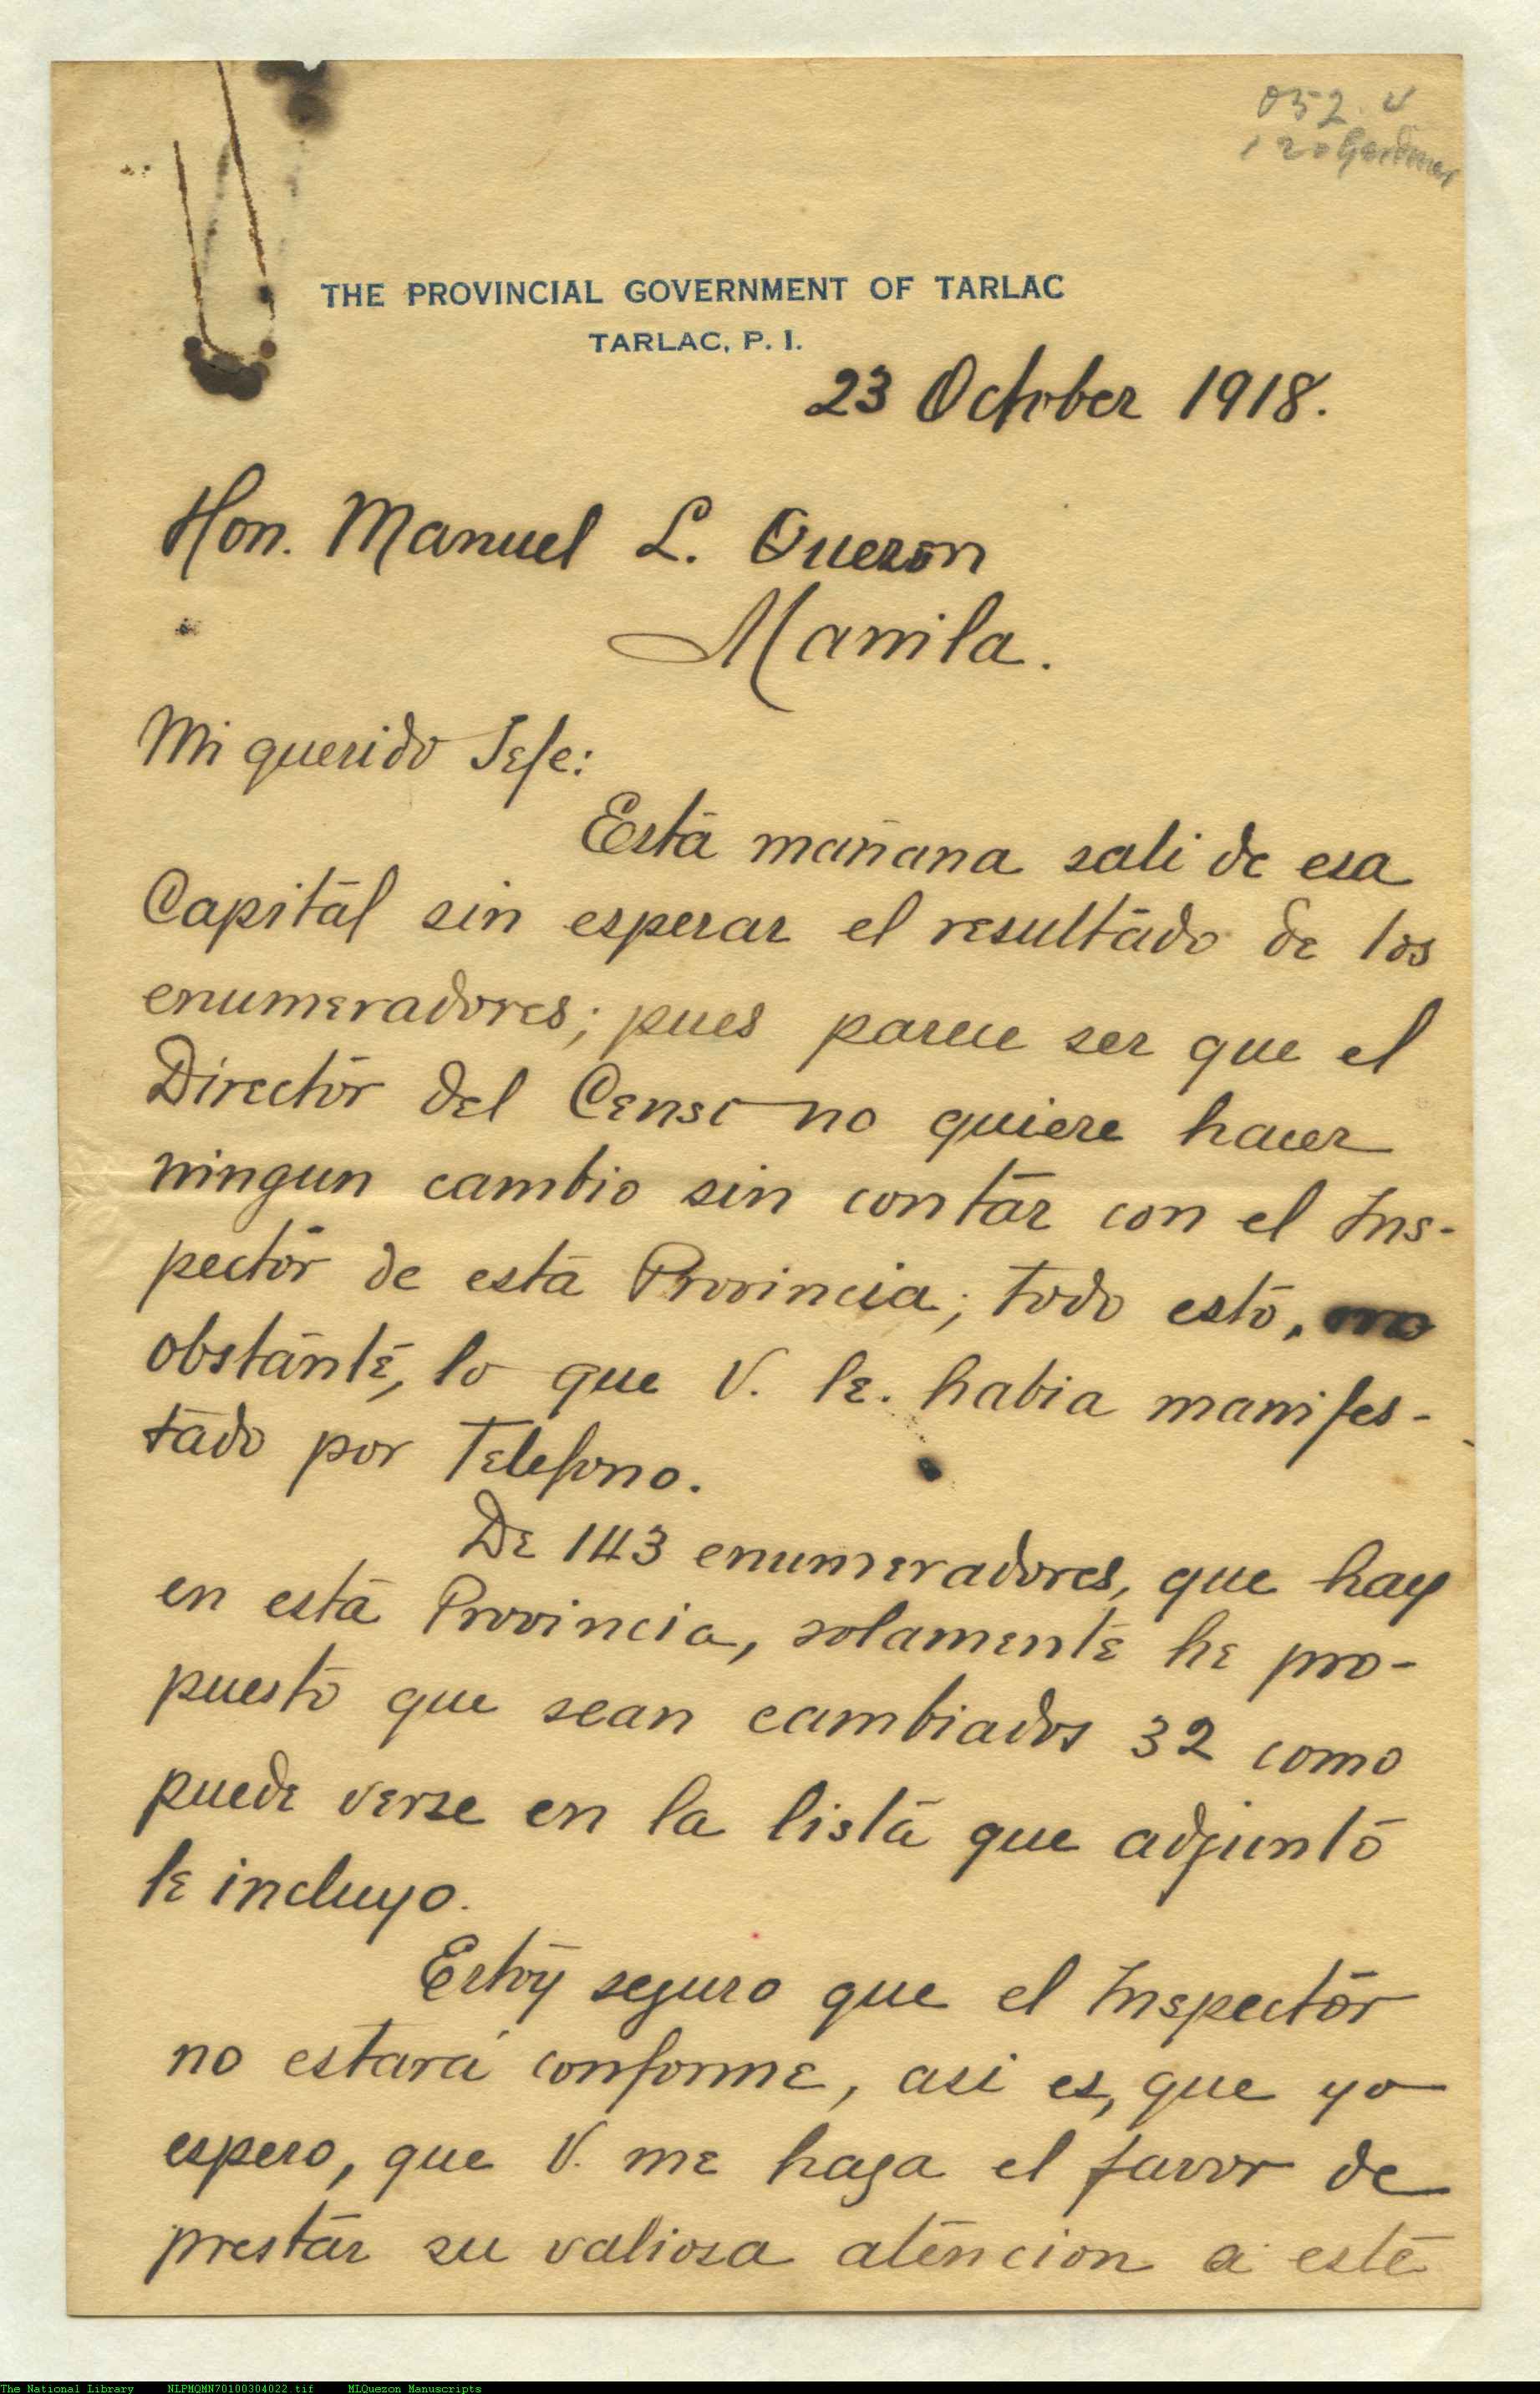 052. v
THE PROVINCIAL GOVERNMENT OF TARLAC
TARLAC, P. I.
23 October 1918.
Hon. Manuel L. Quezon
Manila.
Mi querido Jefe:
Esta mañana sali de esa
Capital sin esperar el resultado de los
enumeradores; pues parece ser que el
Director del Censo no quiere hacer
ningun cambio sin contar con el Ins-
pector de esta Provincia; todo esto, no
obstante, lo que V. le. habia manifes-
tado por Telefono.
De 143 enumeradores, que hay
en esta Provincia, solamente he pro-
puesto que sean cambiados 32 como
puede verse en la lista que adjunto
le incluyo.
Estoy seguro que el Inspector
no estará conforme, asi es, que yo
espero, que V. me haga el favor de
prestar su valiosa atencion a este
The National Library NLPMQMN70100304022.tif MLQuezon Manuscripts